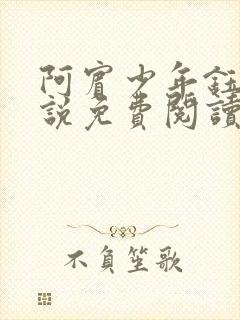 阿賓少年鈺
說免費閱讀
不負笙歌